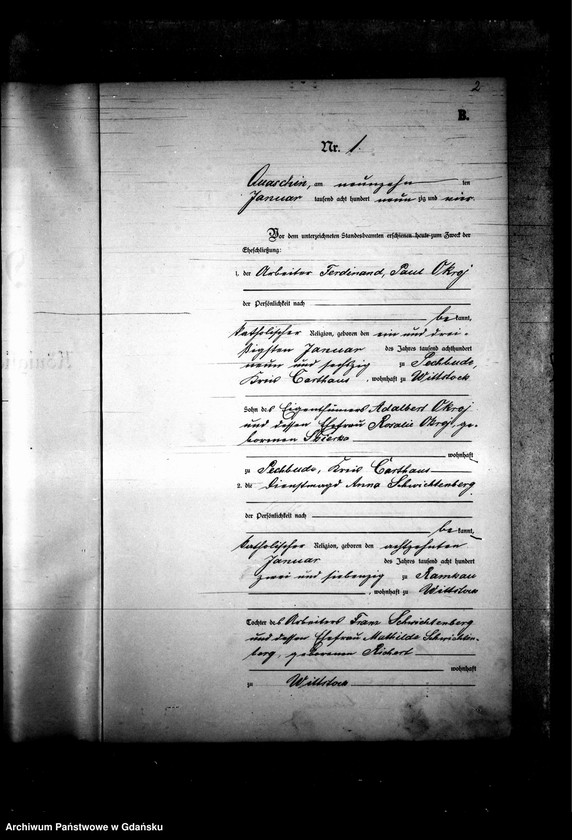 2
B.
Nr. 1.
Quaschin, am neunzehn den
Januar tausend acht hundert neun zig und vier
Vor dem unterzeichneten Standesbeamten erschienen heute zum Zweck der
Eheschließung:
1. der Arbeiter Ferdinand, Paul Okroj
der Persönlichkeit nach
be kannt,
katholischer Religion, geboren den ein und drei-
ßigsten Januar des Jahres tausend achthundert
neun und sechzig zu Pechbude,
Kreis Carthaus, wohnhaft zu Wittstock
Sohn des Eigenthümers Adalbert Okroj
und dessen Ehefrau Rosalie Okroj, ge-
borenen
wohnhaft
zu Pechbude, Kreis Carthaus
2. die Dienstmagd Anna Schwichtenberg
der Persönlichkeit nach
be kannt,
katholischer Religion, geboren den achtzehnten
Januar des Jahres tausend acht hundert
zwei und siebenzig zu Ramkau
, wohnhaft zu Wittstock
Tochter des Arbeiters Franz Schwichtenberg
und dessen Ehefrau Mathilde Schwichten-
berg, geborenen Richert
wohnhaft
zu Wittstock
Archiwum Państwowe w Gdańsku